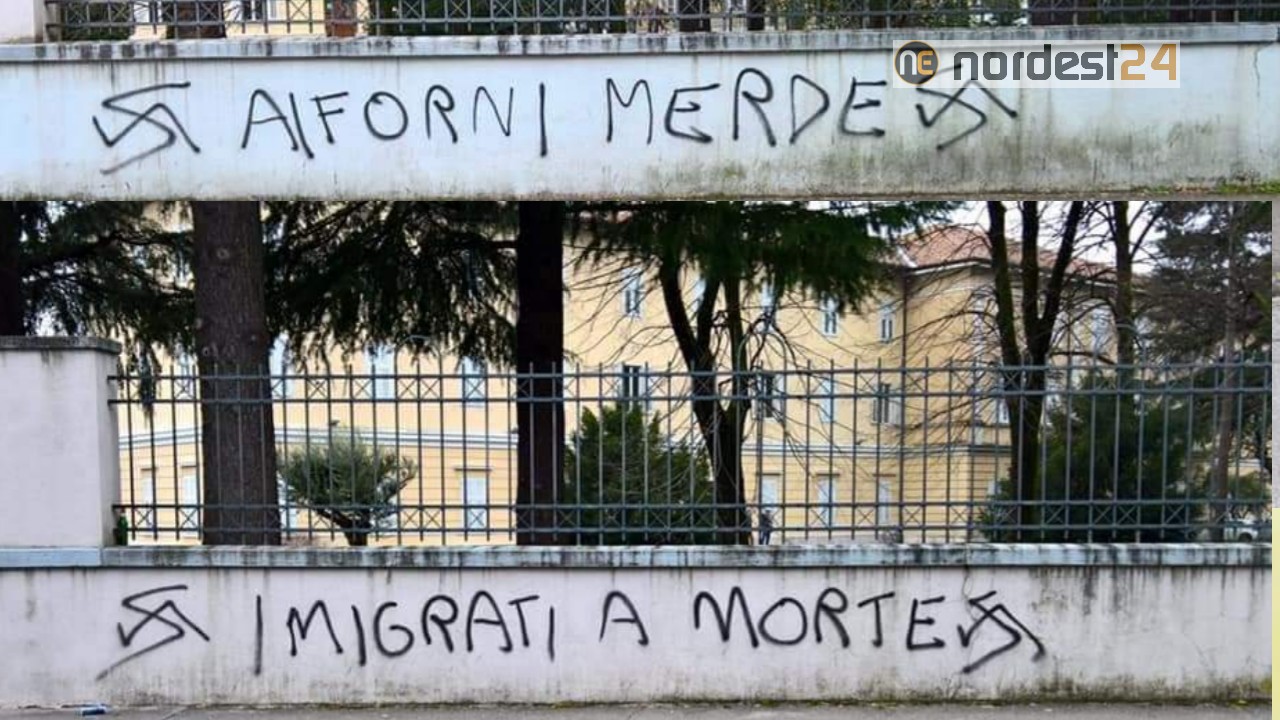 ne nordest24
AI FORNI MERDE
IMIGRATI A MORTE